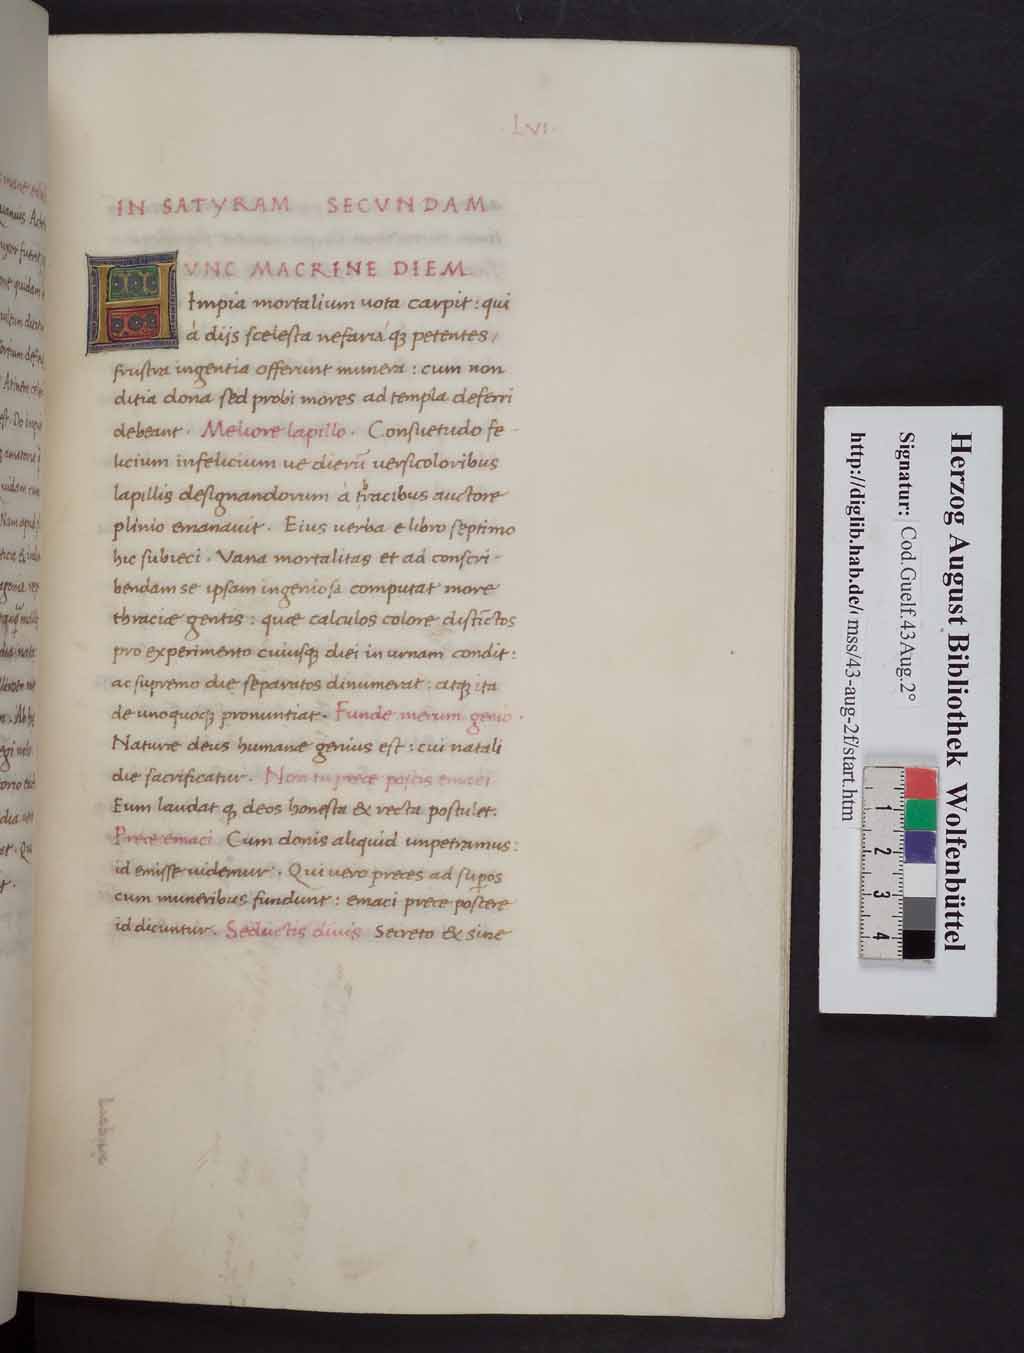 · LVI ·
IN SATYRAM SECVNDAM
HVNC MACRINE DIEM
Impia mortalium uota carpit : qui
á dijs scelesta nefariáqȝ petentes /
frustra ingentia offerunt munera : cum non
ditia dona sed probi mores ad templa deferri
debeant . Meliore lapillo . Consuetudo fe-
licium infelicium ue dierū uersicoloribus
lapillis designandorum á thracibus auctore
plinio emanauit . Eius uerba e libro septimo
hic subieci . Vana mortalitas et ad conscri-
bendam se ipsam ingeniosa computat more
thraciæ gentis : quæ calculos colore distīctos
pro experimento cuiusqȝ diei in urnam condit :
ac supremo die separatos dinumerat : atqȝ ita
de unoquoqȝ pronuntiat . Funde merum genio .
Naturæ deus humanæ genius est : cui natali
die sacrificatur . Non tu prece poscis emaci
Eum laudat q deos honesta & recta postulet .
Prece emaci Cum donis aliquid impetramus :
id emisse uidemur . Qui uero preces ad supos
cum muneribus fundunt : emaci prece poscere
id dicuntur . Seductis diuis Secreto & sine
Herzog August Bibliothek Wolfenbüttel
Signatur: Cod.Guelf.43 Aug.2°
http://diglib.hab.de/ mss/43-aug-2f/start.htm
1 2 3 4